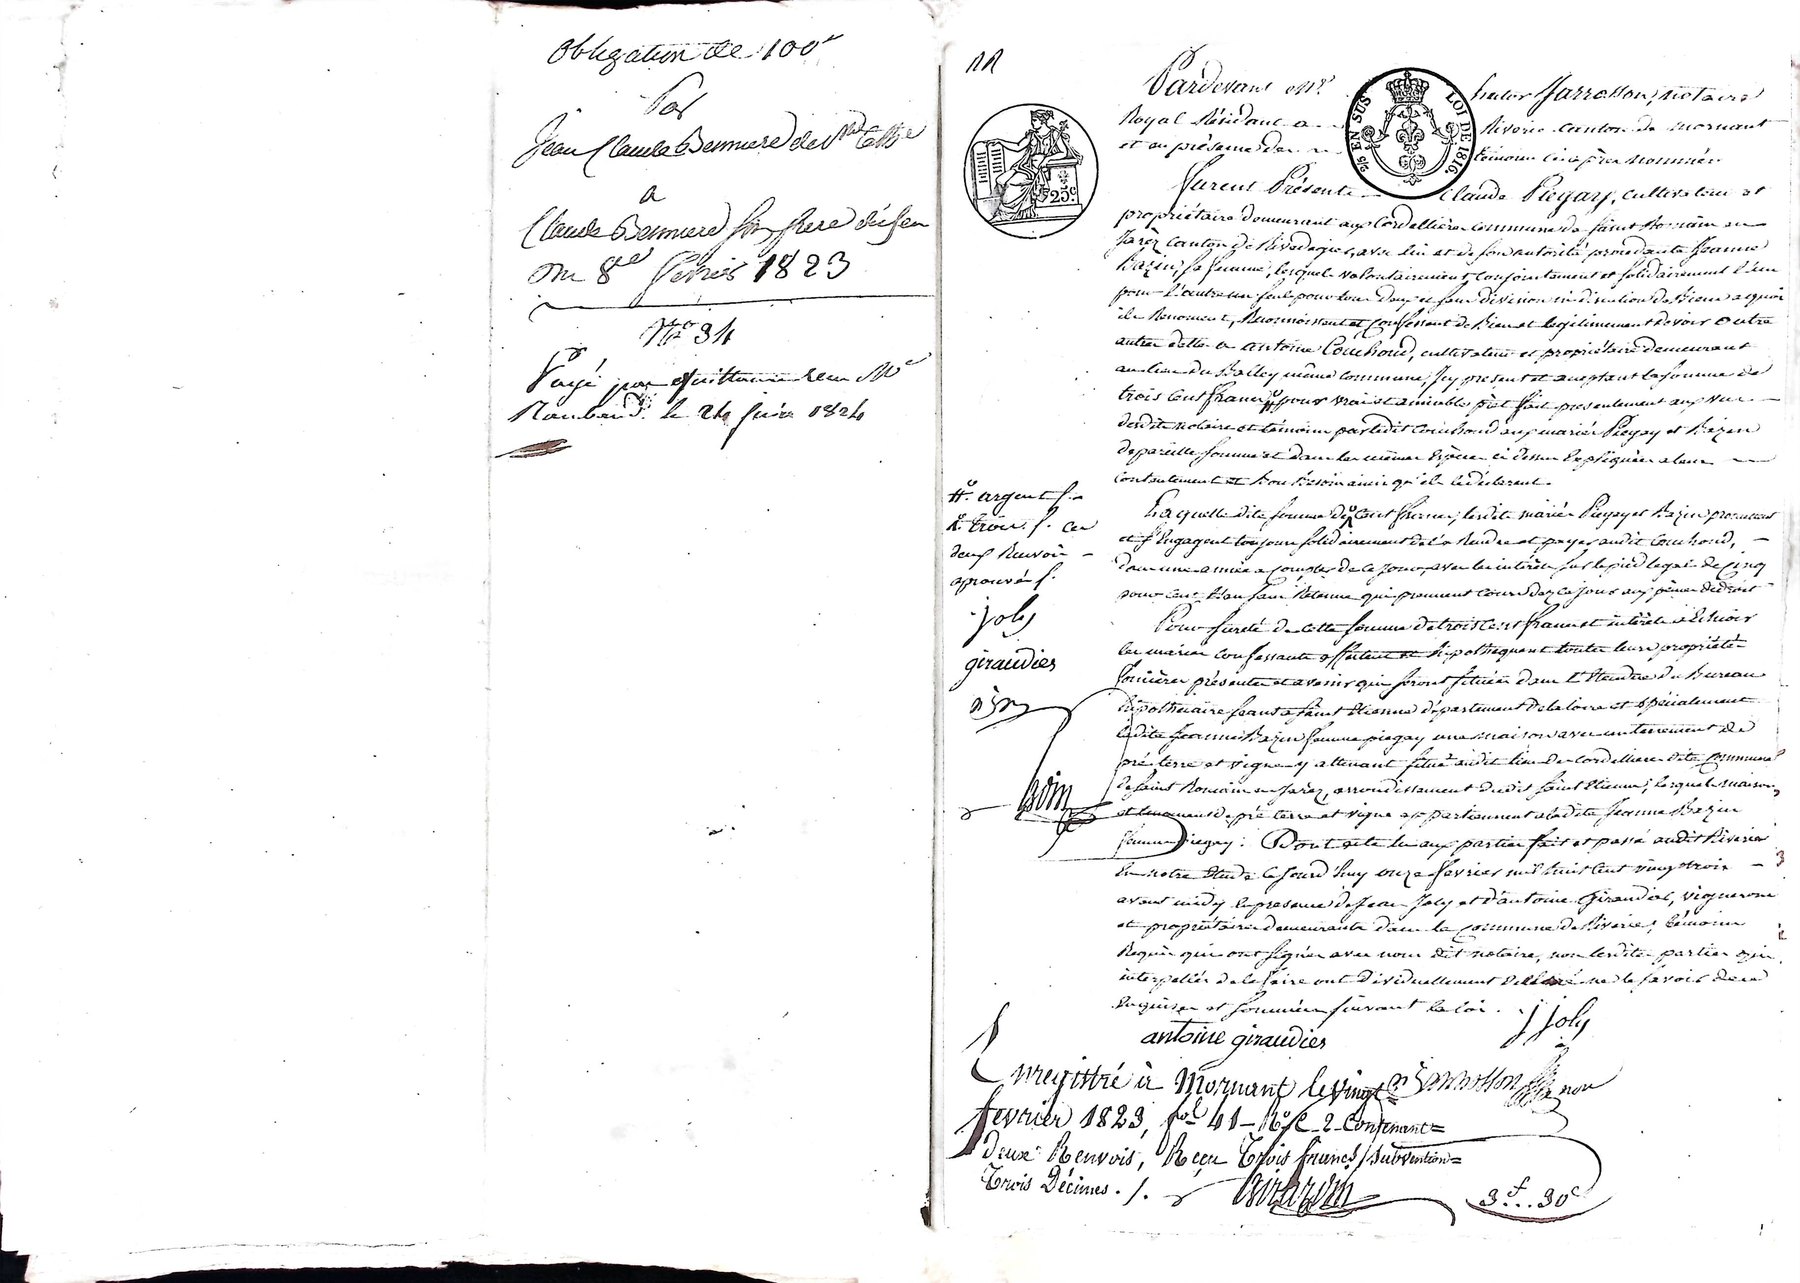 Obligation de 100f
Par
Jean Claude Benniere de
a
Claude Benniere son frere du feu
Du 8 fevrier 1823
No 34
Payé par quittance recu Me
le 24 juin 1824
Pardevant Me hector Jarrosson, notaire
Royal Résidant a Riverie canton de mornant
et en présence des témoins ci après nommés
Furent Présents Claude Piegay, cultivateur et
propriétaire demeurant aux Cordellière commune de Saint Romain en
Jarèz canton de Rivedegier, avec lui et de son autorité procédante Jeanne
Bazin, sa femme, lesquels volontairement conjointement et solidairement l'un
pour l'autre un seul pour tous deux et sans division ni discution de Biens a quoi
ils Renoncent, Reconnoissent et Confessent de Bien et legitimement devoir Outre
autre dette a antoine Couchoud, cultivateur et propriétaire demeurant
au lieu du même commune, Icy présent et acceptant la somme de
trois Cent francs pour vrai et amiable prêt fait presentement aux vue
desdits notaire et témoins par ledit Couchoud aux mariés Piegay et Bazin
de pareille somme et dans les mêmes Espèces ci dessus Expliquées a leur
contentement et ainsi qu'ils le déclarent.
Laquelle dite somme de Cent francs, lesdits mariés Piegay et Bazin promettent
et s'Engagent toujours solidairement de la Rendre et payer audit Couchoud,
dans une année a compter de ce jour, avec les intérêts sur le pied légal de Cinq
pour cent l'an sans Retenue qui prennent cours dez ce jour aux peines de droit
Pour sureté de cette somme de trois Cent francs et intérêts à Echoir
les mariés confessants affectent et hipothequent toutes leurs propriétés
foncières présentes et avenir qui seront situées dans l'Etendue du Bureau
hipothecaire séant a Saint Etienne département de la loire et spécialement
ladite Jeanne Bazin femme piegay une maison avec un tenement de
pré terre et vigne y attenant situé audit lieu des cordellière dite Commune
de Saint Romain en Jarèz, arrondissement dudit Saint Etienne, lesquels maison,
et tenement de pré terre et vigne appartiennent a ladite Jeanne Bazin
femme piegay. Dont acte lu aux parties fait et passé audit Riverie
En notre Etude Ce jourd'huy onze fevrier mil huit cent vingt trois
avant midy En présence de Jean Joly et d'antoine Giraudier, vignerons
et propriétaires demeurants dans la Commune de Riverie, témoins
Requis qui ont signés avec nous dit notaire, non lesdites parties qui
interpellées de le faire ont dividuellement déclaré ne le savoir de ce
Enquises et sommées suivant la loi.
#o. argent f.
trois f. ces
deux Renvoir
aprouvés f.
joly
giraudier
J joly
antoine giraudier
Jarrosson
Enregistré à Mornant le vingt
fevrier 1823, fol 41 Ro C 2 Contenant
deux Renvois, Reçu Trois francs, subvention
Trois Décimes.
3f..30c
2/5 EN SUS LOI DE 1816.
25c